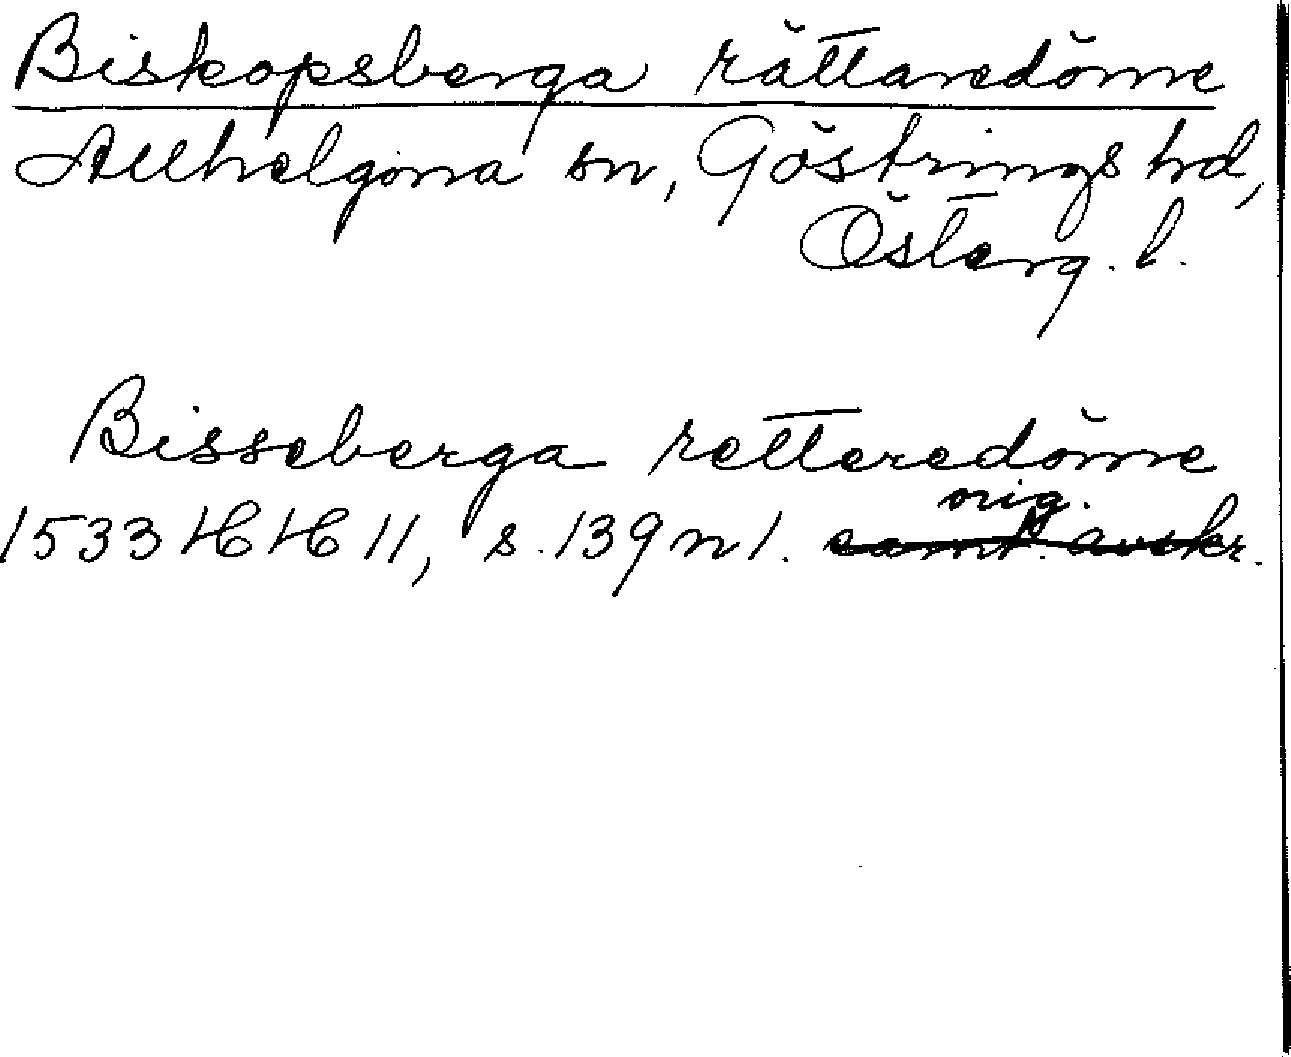 Biskopsberga rättaredöme
Allhelgona sn, Göstrings hd,
Österg. l.
Bisseberga retteredöme
orig.
1533 HH 11, s. 139 n 1. samt. avskr.